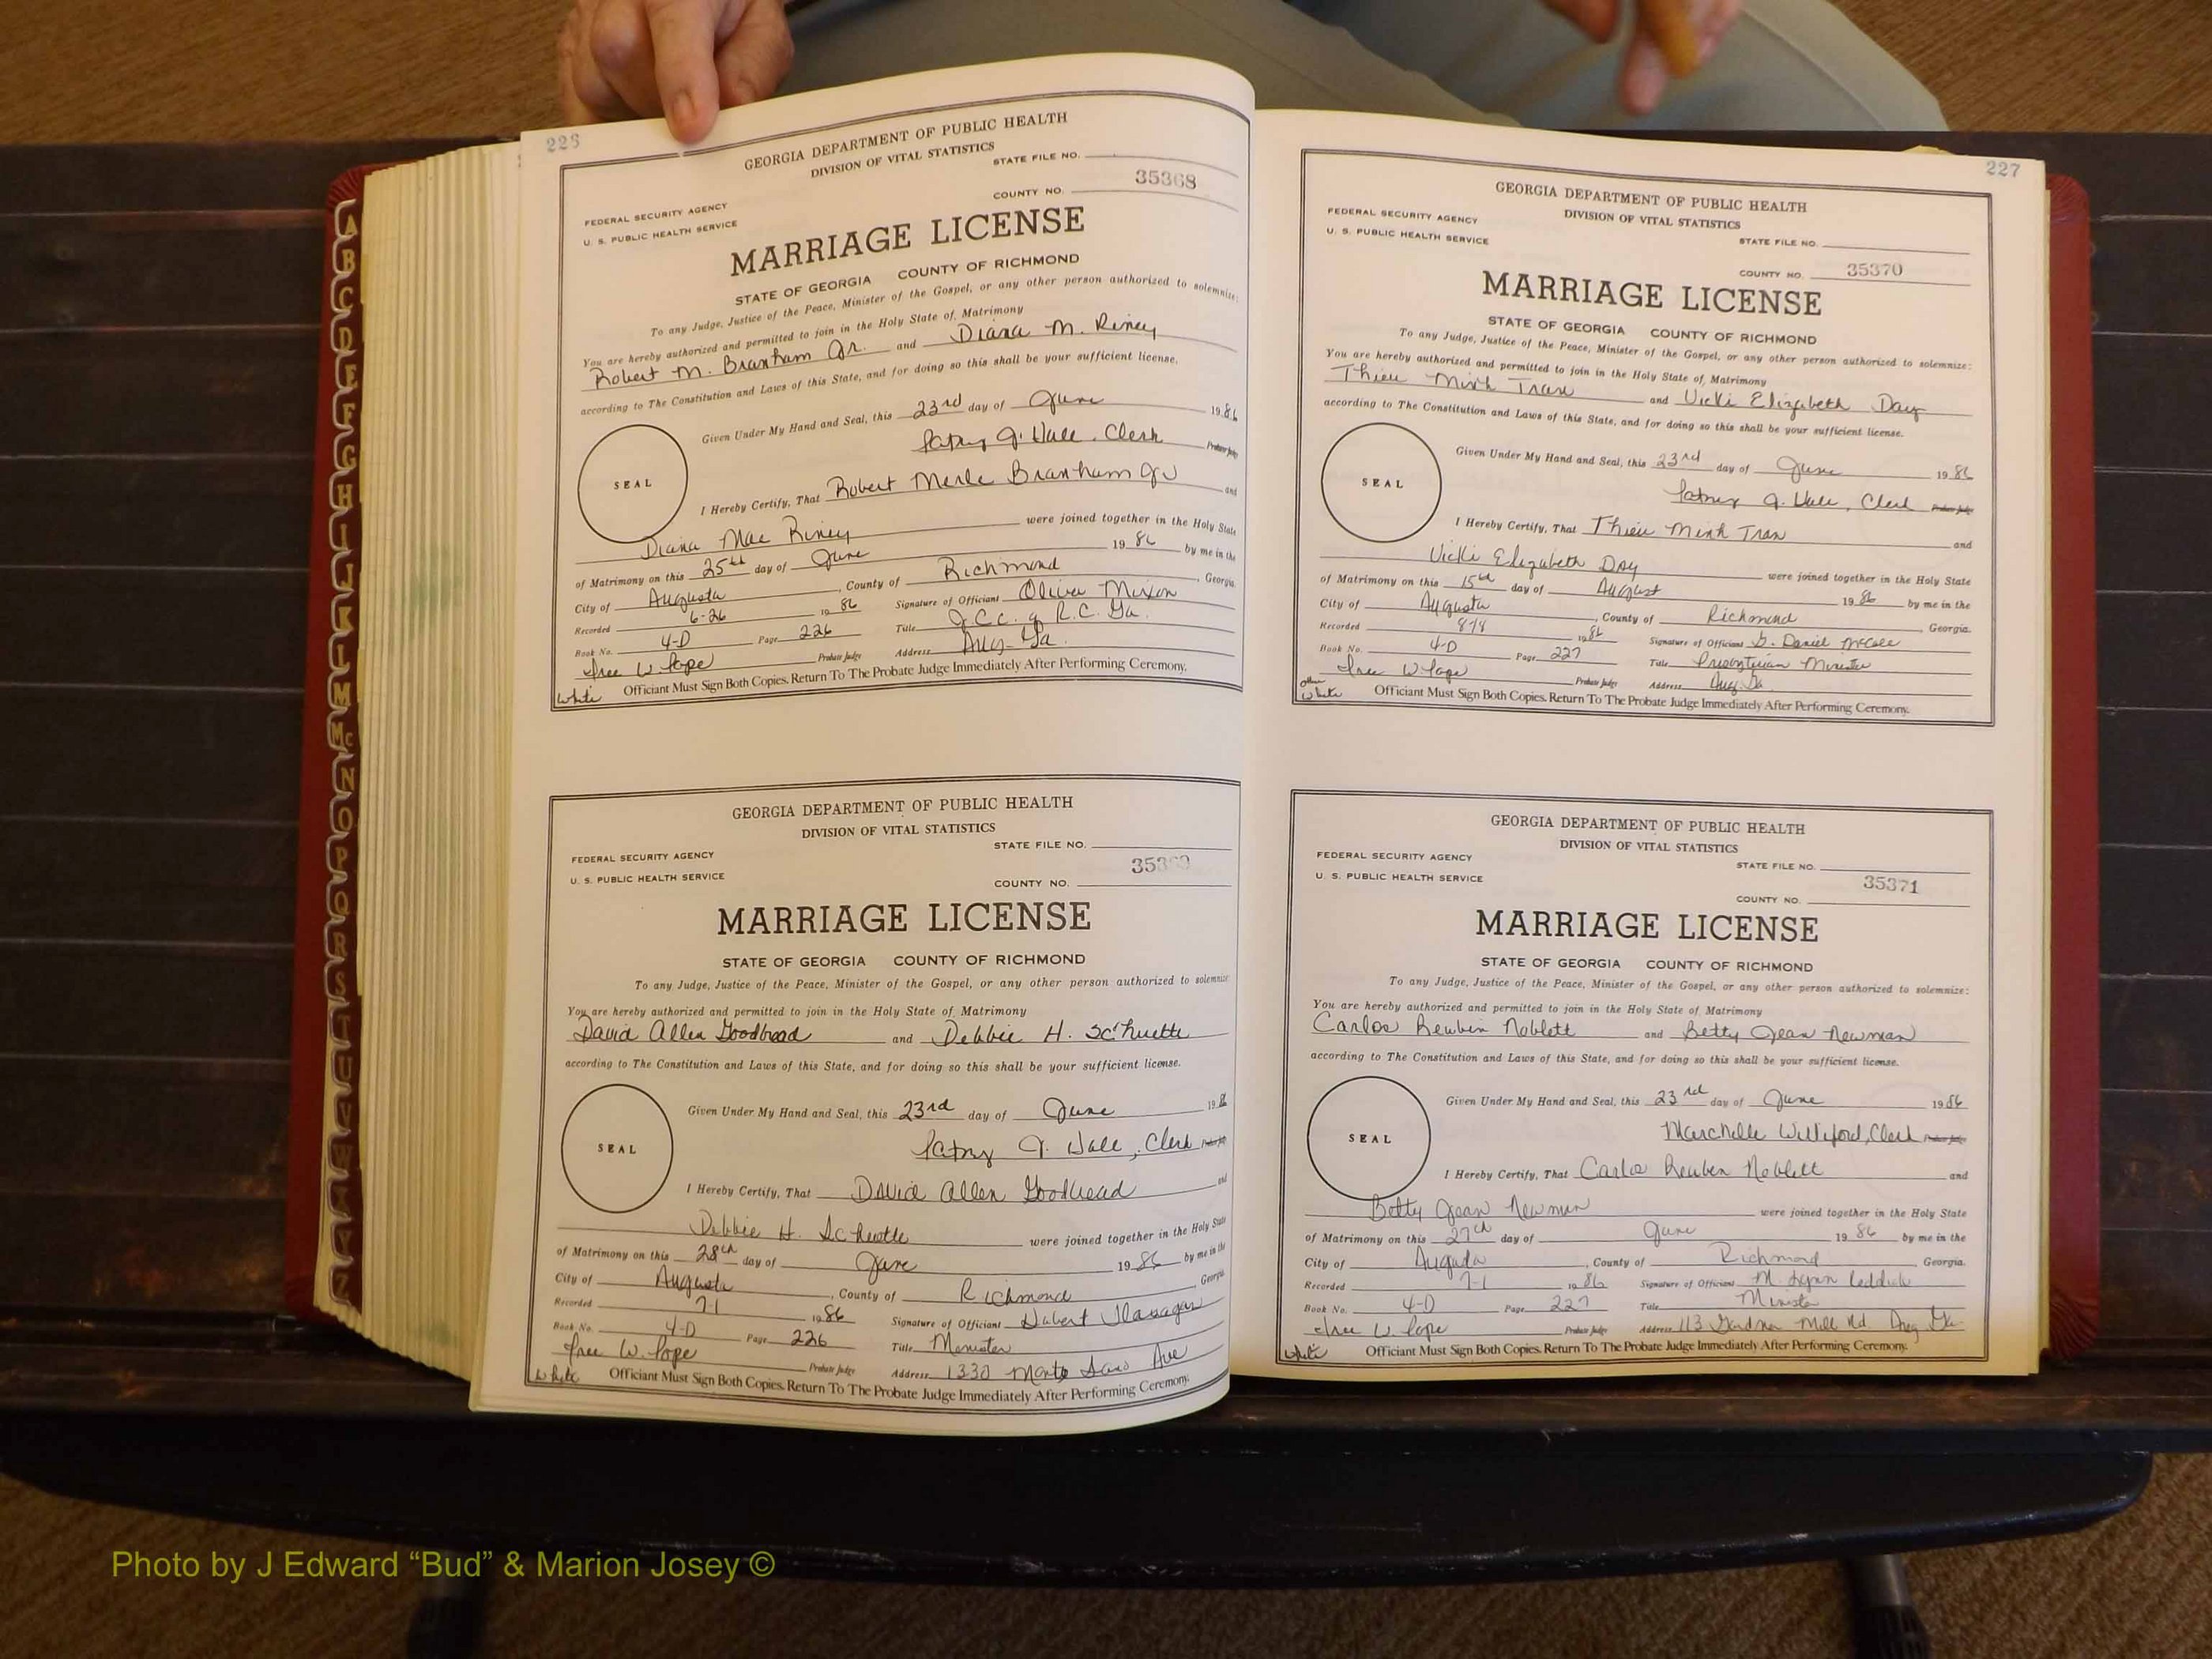 A
B
C
D
E
F
G
H
I
J
K
L
M
Mc
N
O
P
Q
R
S
T
U
V
W
X
Y
Z
226
GEORGIA DEPARTMENT OF PUBLIC HEALTH
DIVISION OF VITAL STATISTICS
STATE FILE NO.
35368
COUNTY NO.
FEDERAL SECURITY AGENCY
U. S. PUBLIC HEALTH SERVICE
MARRIAGE LICENSE
STATE OF GEORGIA COUNTY OF RICHMOND
To any Judge, Justice of the Peace, Minister of the Gospel, or any other person authorized to solemnize:
You are hereby authorized and permitted to join in the Holy State of Matrimony
Robert M. Branham Jr. and Diana M. Riney
according to The Constitution and Laws of this State, and for doing so this shall be your sufficient license.
Given Under My Hand and Seal, this 23rd day of June 1986
Clerk Probate Judge
SEAL
I Hereby Certify, That Robert Merle Branham Jr and
Diana Mae Riney were joined together in the Holy State
of Matrimony on this 25th day of June 1986 by me in the
City of Augusta, County of Richmond, Georgia.
Recorded 6-26 1986 Signature of Officiant Oliver Mixon
Book No. 4-D Page 226 Title J.C.C. of R.C. Ga.
W. Pope Probate Judge Address Aug- Ga.
White Officiant Must Sign Both Copies. Return To The Probate Judge Immediately After Performing Ceremony.
GEORGIA DEPARTMENT OF PUBLIC HEALTH
DIVISION OF VITAL STATISTICS
STATE FILE NO.
35369
COUNTY NO.
FEDERAL SECURITY AGENCY
U. S. PUBLIC HEALTH SERVICE
MARRIAGE LICENSE
STATE OF GEORGIA COUNTY OF RICHMOND
To any Judge, Justice of the Peace, Minister of the Gospel, or any other person authorized to solemnize:
You are hereby authorized and permitted to join in the Holy State of Matrimony
David Allen Goodbread and Debbie H. Schuette
according to The Constitution and Laws of this State, and for doing so this shall be your sufficient license.
Given Under My Hand and Seal, this 23rd day of June 198
Clerk Probate Judge
SEAL
I Hereby Certify, That David Allen Goodbread and
Debbie H. Schuette were joined together in the Holy State
of Matrimony on this 28th day of June 1986 by me in the
City of Augusta, County of Richmond Georgia.
Recorded 7-1 1986 Signature of Officiant
Book No. 4-D Page 226 Title Minister
W. Pope Probate Judge Address 1330 Monte Sano Ave
White Officiant Must Sign Both Copies. Return To The Probate Judge Immediately After Performing Ceremony.
227
GEORGIA DEPARTMENT OF PUBLIC HEALTH
DIVISION OF VITAL STATISTICS
FEDERAL SECURITY AGENCY
U. S. PUBLIC HEALTH SERVICE
STATE FILE NO.
COUNTY NO. 35370
MARRIAGE LICENSE
STATE OF GEORGIA COUNTY OF RICHMOND
To any Judge, Justice of the Peace, Minister of the Gospel, or any other person authorized to solemnize:
You are hereby authorized and permitted to join in the Holy State of Matrimony
Thieu Minh Tran and Vicki Elizabeth Day
according to The Constitution and Laws of this State, and for doing so this shall be your sufficient license.
Given Under My Hand and Seal, this 23rd day of June 1986
Clerk Probate Judge
SEAL
I Hereby Certify, That Thieu Minh Tran and
Vicki Elizabeth Day were joined together in the Holy State
of Matrimony on this 15th day of August 1986 by me in the
City of Augusta, County of Richmond, Georgia.
Recorded 1986 Signature of Officiant Daniel McCall
Book No. 4-D Page 227 Title Presbyterian Minister
W. Pope Probate Judge Address Aug Ga
other
White Officiant Must Sign Both Copies. Return To The Probate Judge Immediately After Performing Ceremony.
GEORGIA DEPARTMENT OF PUBLIC HEALTH
DIVISION OF VITAL STATISTICS
FEDERAL SECURITY AGENCY
U. S. PUBLIC HEALTH SERVICE
STATE FILE NO.
35371
COUNTY NO.
MARRIAGE LICENSE
STATE OF GEORGIA COUNTY OF RICHMOND
To any Judge, Justice of the Peace, Minister of the Gospel, or any other person authorized to solemnize:
You are hereby authorized and permitted to join in the Holy State of Matrimony
Carlos Reuben Noblett and Betty Jean Newman
according to The Constitution and Laws of this State, and for doing so this shall be your sufficient license.
Given Under My Hand and Seal, this 23rd day of June 1986
Marchelle Williford, Clerk Probate Judge
SEAL
I Hereby Certify, That Carlos Reuben Noblett and
Betty Jean Newman were joined together in the Holy State
of Matrimony on this 27th day of June 1986 by me in the
City of Augusta, County of Richmond Georgia.
Recorded 7-1 1986 Signature of Officiant M. Lynn Reddick
Book No. 4-D Page 227 Title Minister
W. Pope Probate Judge Address 113 Gardner Mill Rd Aug Ga-
White Officiant Must Sign Both Copies. Return To The Probate Judge Immediately After Performing Ceremony.
Photo by J Edward “Bud” & Marion Josey ©